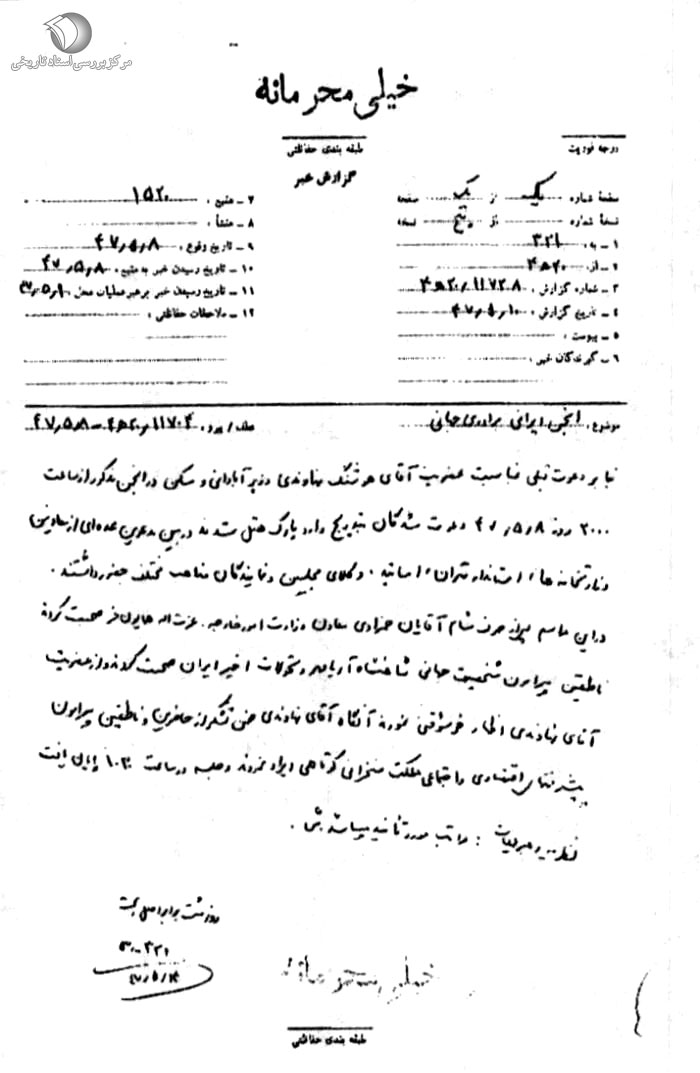 مرکز بررسی اسناد تاریخی
خیلی محرمانه
درجه فوریت
طبقه بندی حفاظتی
گزارش خبر
صفحه شماره یک از یک صفحه
نسخهٔ شماره از پنج نسخه
۱ - به : ۳۲۱
۲ - از : ۴ ه‍ ۲۰
۳ - شماره گزارش : ۴ ه‍ ۲۰/۱۱۷۲۰۸
۴ - تاریخ گزارش : ۴۷/۵/۱۰
۵ - پیوست :
۶ - گیرندگان خبر :
۷ - منبع : ۱۵۲۰
۸ - منشأ :
۹ - تاریخ وقوع : ۴۷/۵/۸
۱۰ - تاریخ رسیدن خبر به منبع : ۴۷/۵/۸
۱۱ - تاریخ رسیدن خبر برهبر عملیات محل :
۱۲ - ملاحظات حفاظتی :
موضوع : انجمن ایرانی برادری جهانی
عطف / پیرو :
بنا بر دعوت قبلی مناسبت عضویت آقای هوشنگ نهاوندی وزیر آبادانی و مسکن در انجمن مذکور از ساعت
۲۰۰۰ روز ۴۷/۵/۸ دعوت شدگان بتدریج وارد پارک هتل شدند در بین مدعوین عده‌ای از معاونین
وزارتخانه ها، استاندار تهران، اساتید، وکلای مجلسین و نمایندگان مذاهب مختلف حضور داشتند.
در این مراسم پس از صرف شام آقایان معاون وزارت امور خارجه، عزت اله همایون فر صحبت کرده
ناطقین پیرامون شخصیت جهانی شاهنشاه آریامهر و تحولات اخیر ایران صحبت کردند و از عضویت
آقای نهاوندی اظهار خوشوقتی نموده آنگاه آقای نهاوندی ضمن تشکر از حاضرین و ناطقین پیرامون
پیشرفتهای اقتصادی و اجتماعی مملکت سخنرانی کوتاهی ایراد نمودند و جلسه در ساعت پایان یافت
نظریه رهبر عملیات : مراتب مورد تأیید میباشد.
رونوشت برابر اصل است
خیلی محرمانه
طبقه بندی حفاظتی